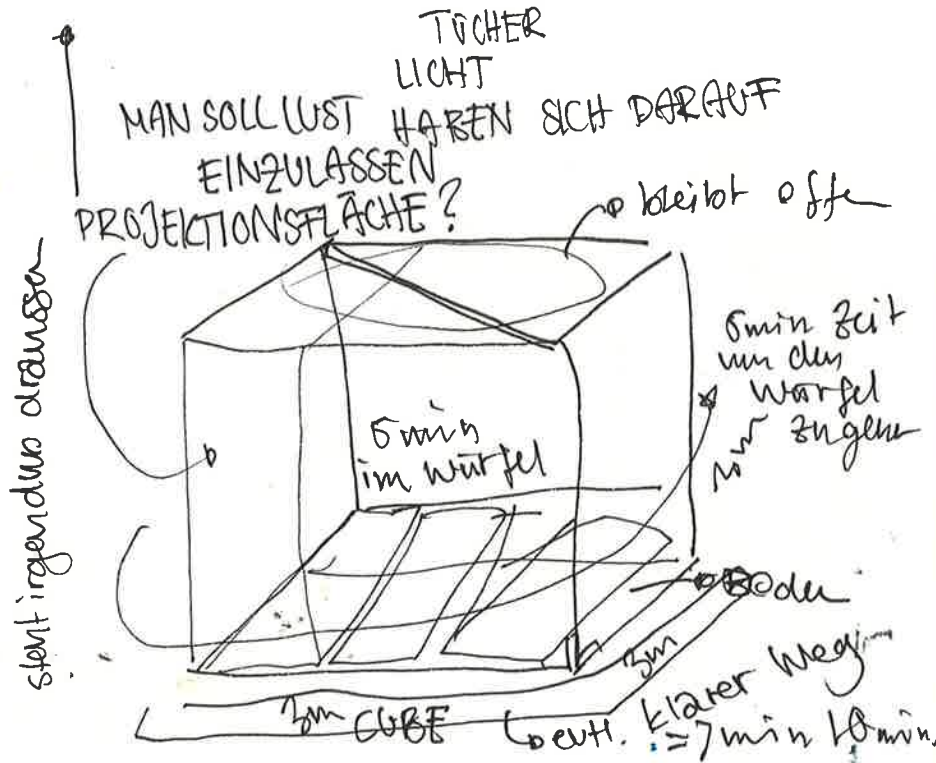 TÜCHER
LICHT
MAN SOLL LUST HABEN SICH DARAUF
EINZULASSEN
PROJEKTIONSFLÄCHE?
bleibt offen
steht irgendwo draussen
5min Zeit
um den
Würfel
zugehen
5min
im Würfel
Boden
3m
3m CUBE
evtl. klarer Weg
7min 10min.